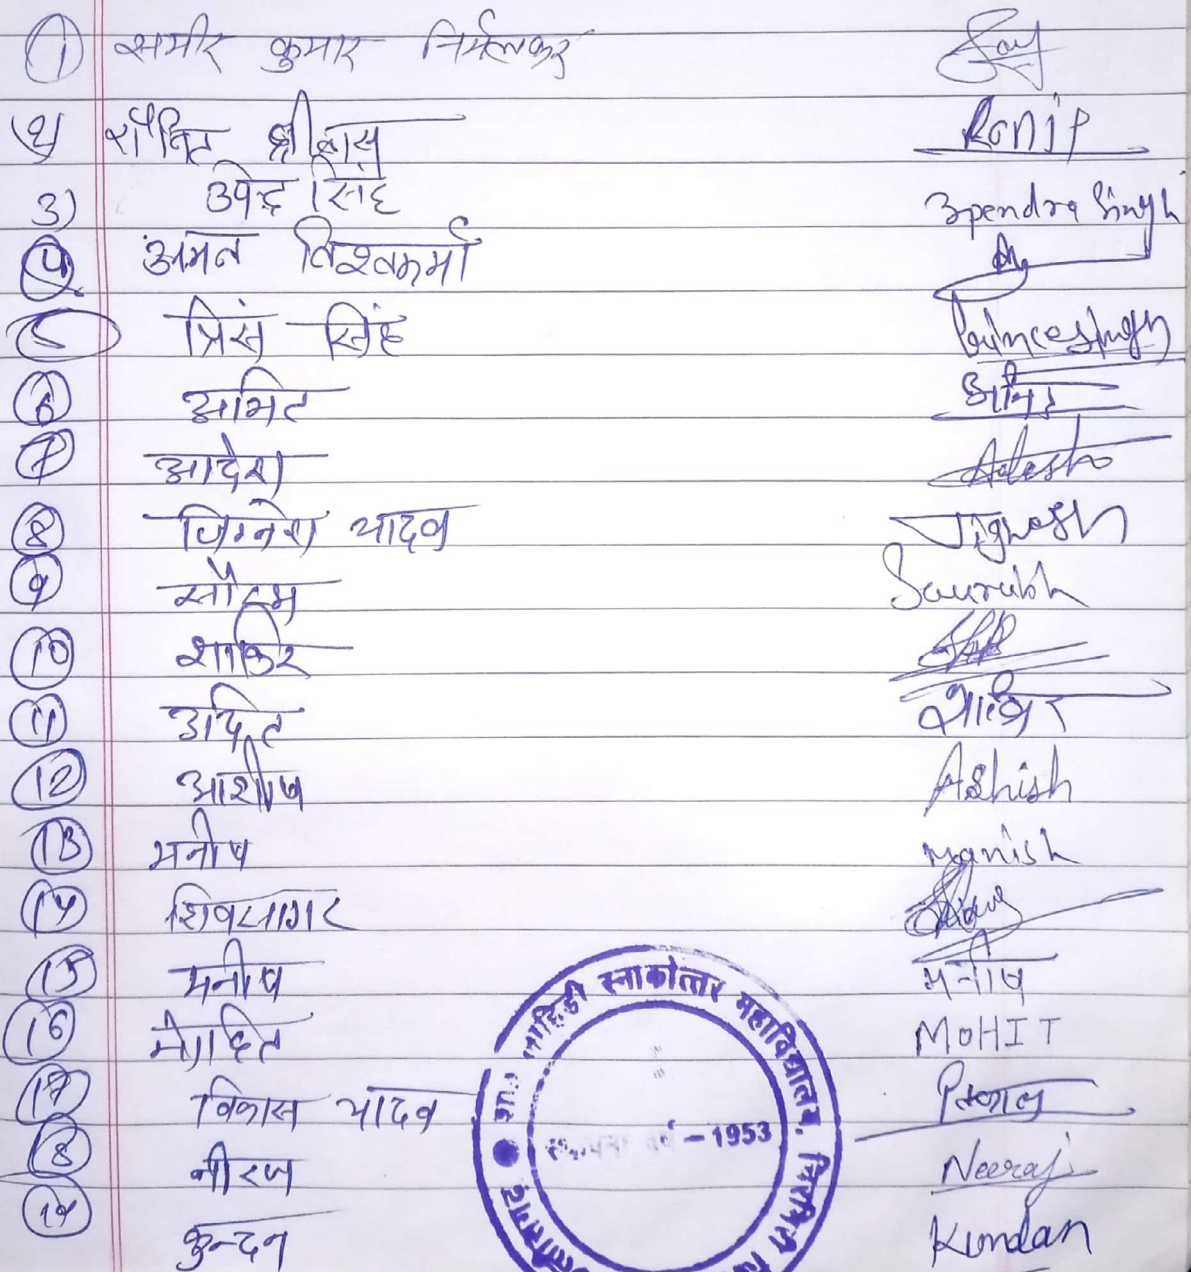 1 समीर कुमार निर्मलकर
2) श्रीवास Ronit
3) उपेन्द्र सिंह उpendra Singh
4 अमन विश्वकर्मा
5 प्रिंस सिंह Princesingh
6 अमित अमित
7 आदेश Adesh
8 जिग्नेश यादव Jignesh
9 सौरभ Saurabh
10 शाकिर
11 उदित
12 आशीष Ashish
13 मनीष Manish
14 शिवसागर
15 मनीष मनीष
16 मोहित MOHIT
17 विकास यादव
18 नीरज Neeraj
19 कुन्दन Kundan
लाहिडी स्नाकोत्तर महाविद्यालय, चिरमिरी
– 1953